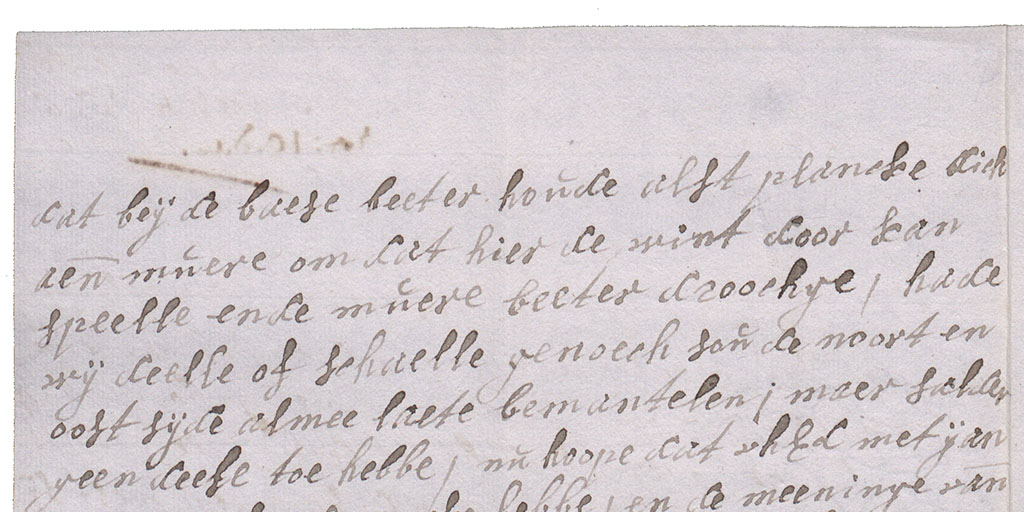 dat beÿ de baese beeter houde alst plancke dich
aen muere om dat hier de wint door kan
speelle ende muere beeter droochge / hade
wÿ deelle of schaelle genoech soude noort en
oost sÿde almee laete bemantelen / maer salder
geen deese toe hebbe / nu hoope dat uh&d met ÿan
hebbe / en de meeninge van